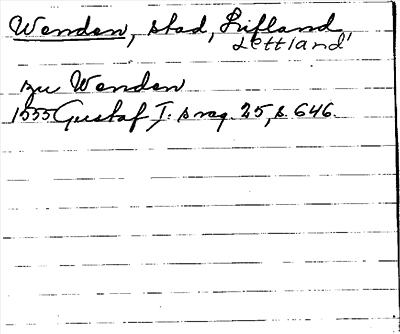 Wenden, stad, Lifland
Lettland
zu Wenden
1555 Gustaf I:s reg. 25, s. 646.